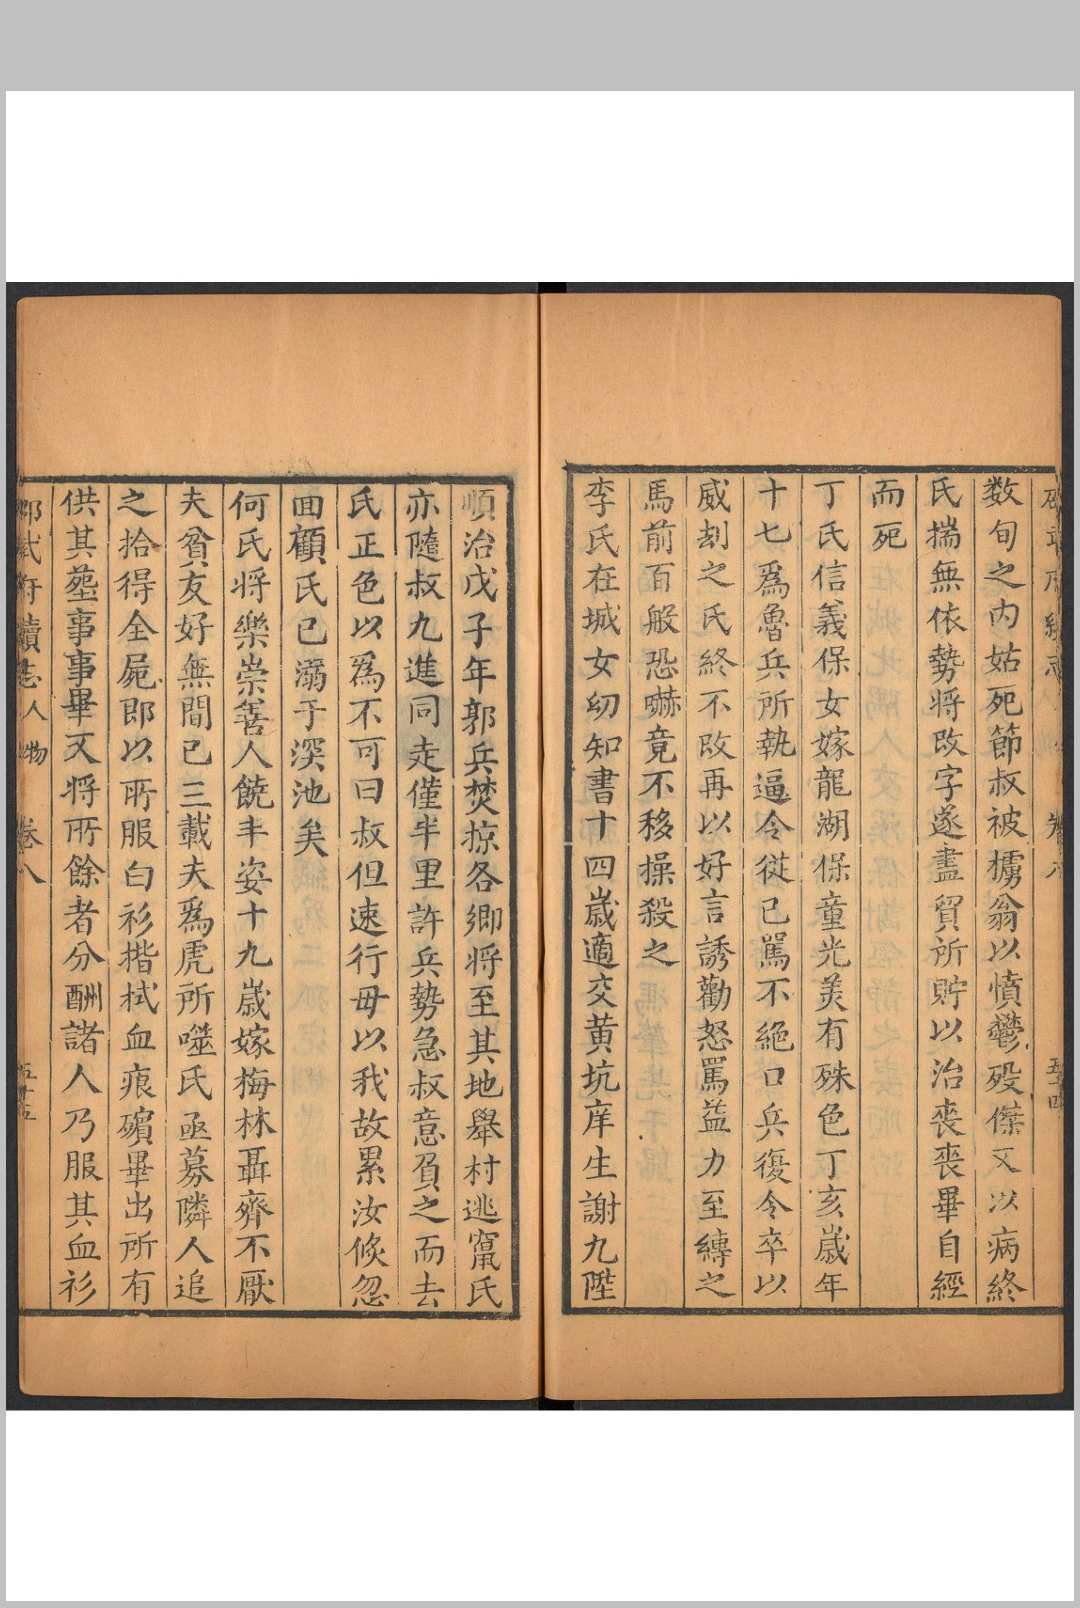 数旬之内姑死節叔被擄翁以憤鬱殁傑又以病終
氏揣無依勢将改字遂盡貿所貯以治喪喪畢自經
而死
丁氏信義保女嫁龍湖保童光羙有殊色丁亥歲年
十七爲魯兵所執逼令従已駡不絕口兵復令卒以
威刼之氏終不改再以好言誘勸怒罵益力至縛之
馬前百般恐嚇竟不移操殺之
李氏在城女幼知書十四歲適交黄坑庠生謝九陞
順治戊子年郭兵焚掠各鄉将至其地舉村逃竄氏
亦隨叔九進同走僅半里許兵勢急叔意負之而去
氏正色以爲不可曰叔但速行毋以我故累汝倏忽
回顧氏已溺于深池矣
何氏将樂崇善人饒丰姿十九歲嫁梅林聶齊不厭
夫貧友好無間已三載夫爲虎所噬氏亟募隣人追
之拾得全屍即以所服白衫揩拭血痕殯畢出所有
供其塟事事畢又将所餘者分酬諸人乃服其血衫
邵武府續志 人物 卷八 五十五